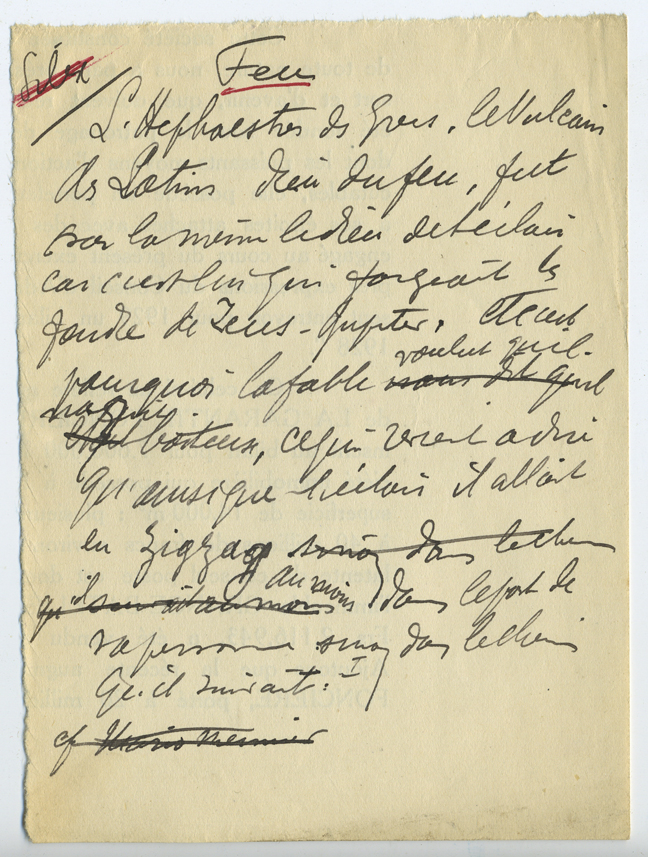 Silex
Feu
L'Hephaestos des Grecs, le Vulcain
des Latins dieu du feu, fut
par la meme le dieu de l'éclair
car c'est lui qui forgeait les
foudre de Zeus-Jupiter. Et c'est
voulut qu'il
pourquoi la fable nous dit qu'il
naquit
boiteux, ce qui revient a dire
qu'ainsi que l'éclair il allait
en zigzag sinon dans le chemin
qu'il suivait au moins
au moins dans le port de
sa personne sinon dans le chemin
qu'il suivait. I
cf Mario Meunier